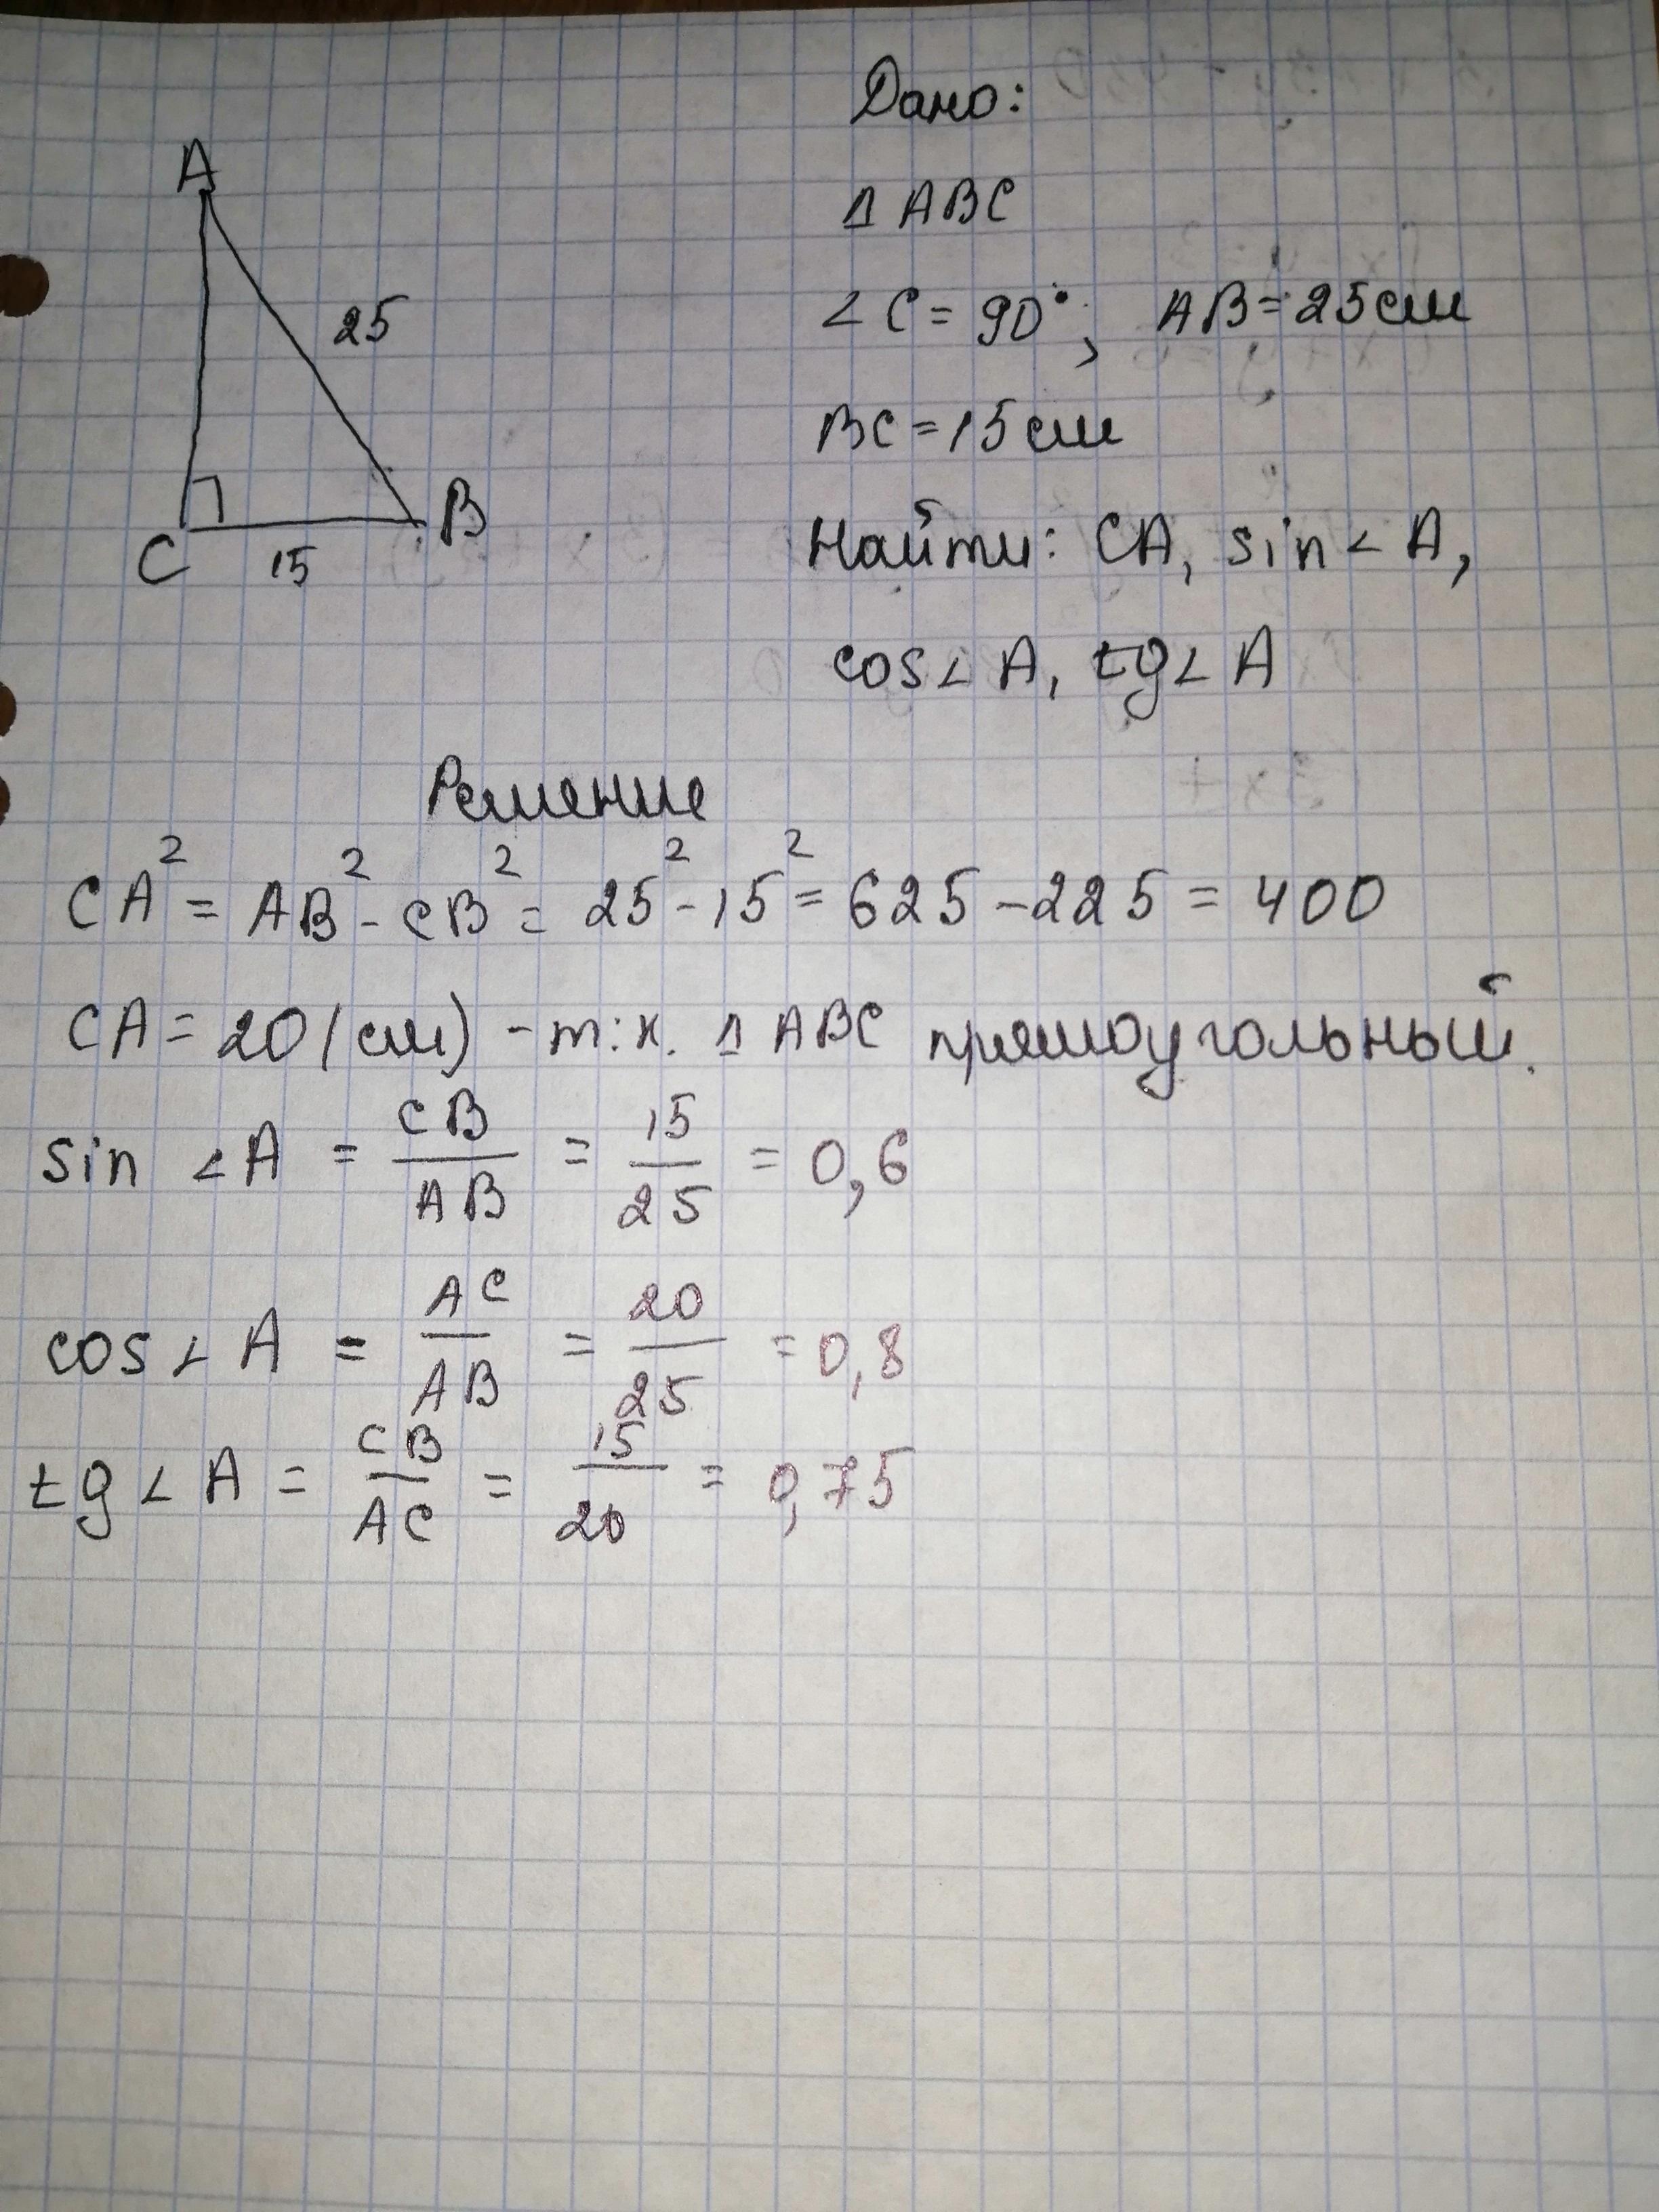 Дано:
A
Δ ABC
25
∠C = 90°, AB = 25 см
BC = 15 см
C 15 B
Найти: CA, sin ∠ A,
cos ∠ A, tg ∠ A
Решение
CA² = AB² - CB² = 25² - 15² = 625 - 225 = 400
CA = 20 (см) - т.к. Δ ABC прямоугольный.
sin ∠A = CB/AB = 15/25 = 0,6
cos ∠ A = AC/AB = 20/25 = 0,8
tg ∠ A = CB/AC = 15/20 = 0,75